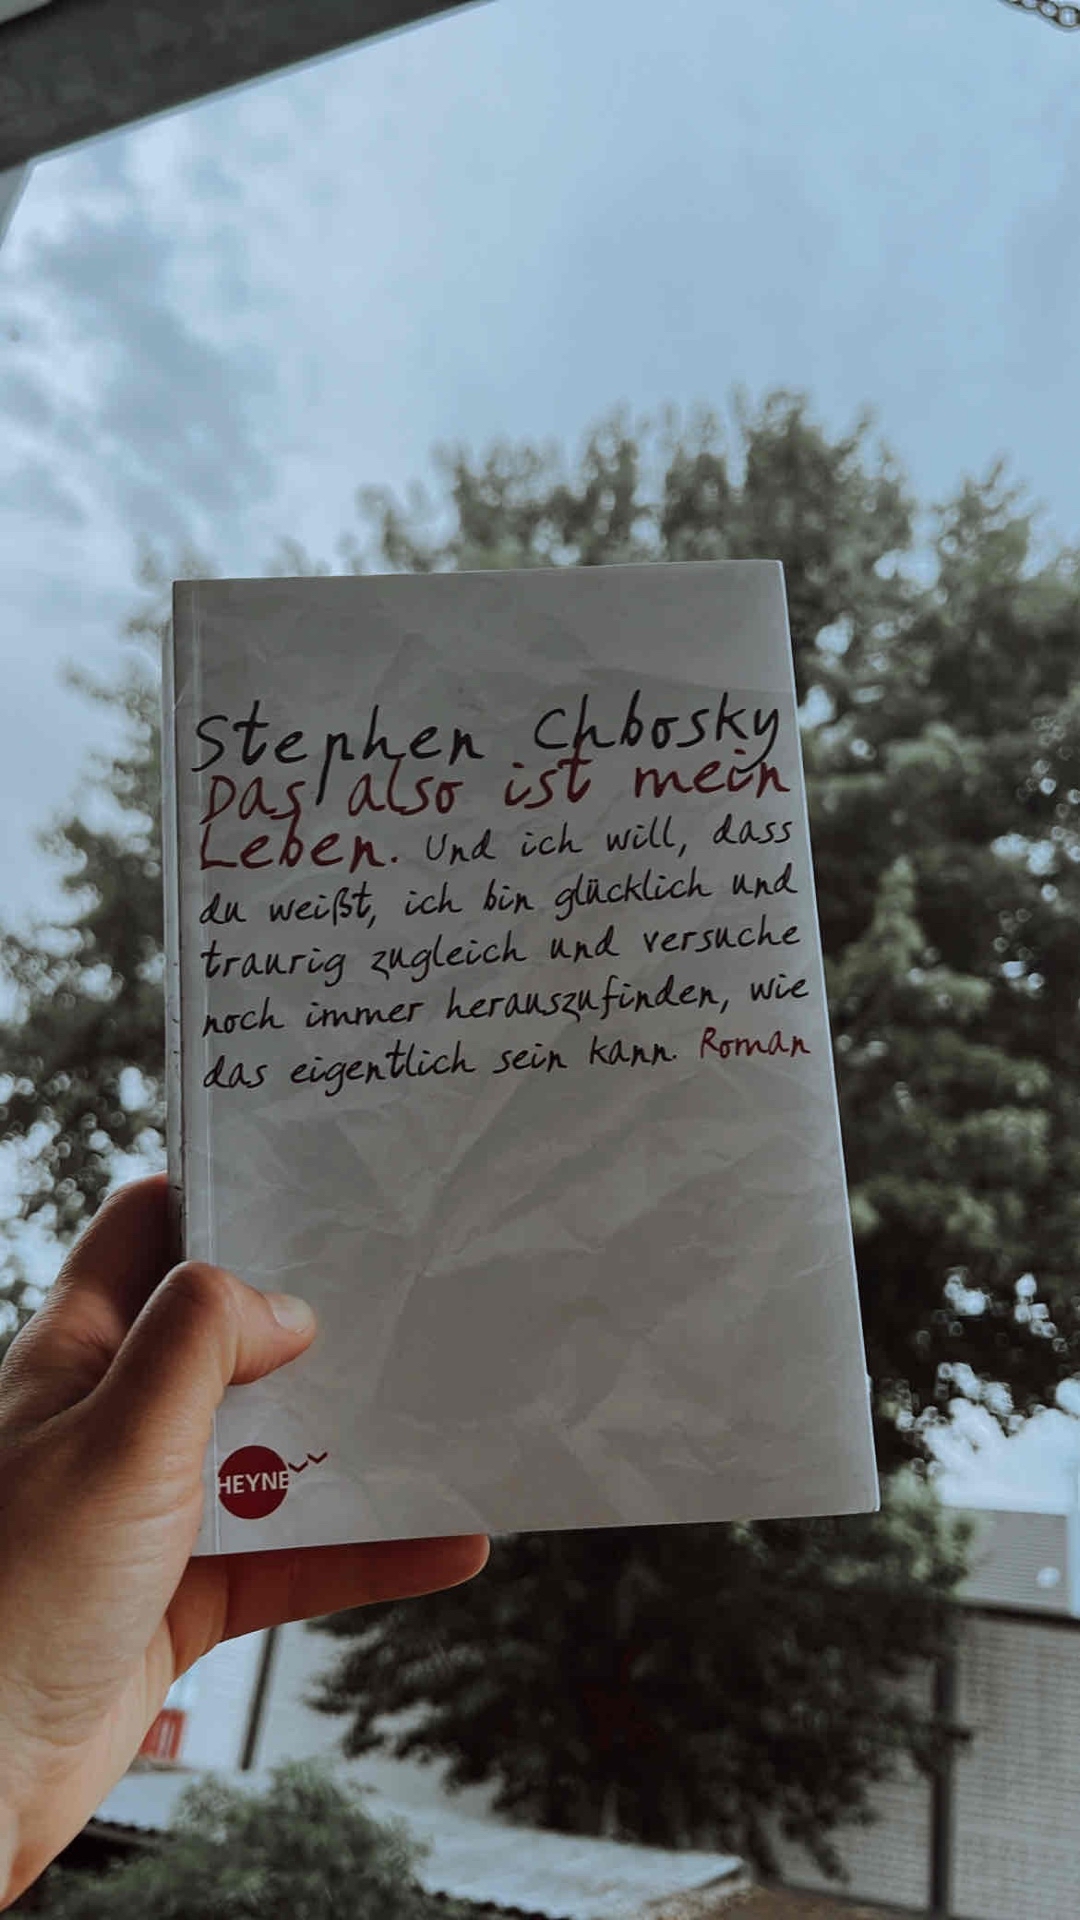 Stephen Chbosky
Das also ist mein
Leben. Und ich will, dass
du weißt, ich bin glücklich und
traurig zugleich und versuche
noch immer herauszufinden, wie
das eigentlich sein kann. Roman
HEYNE